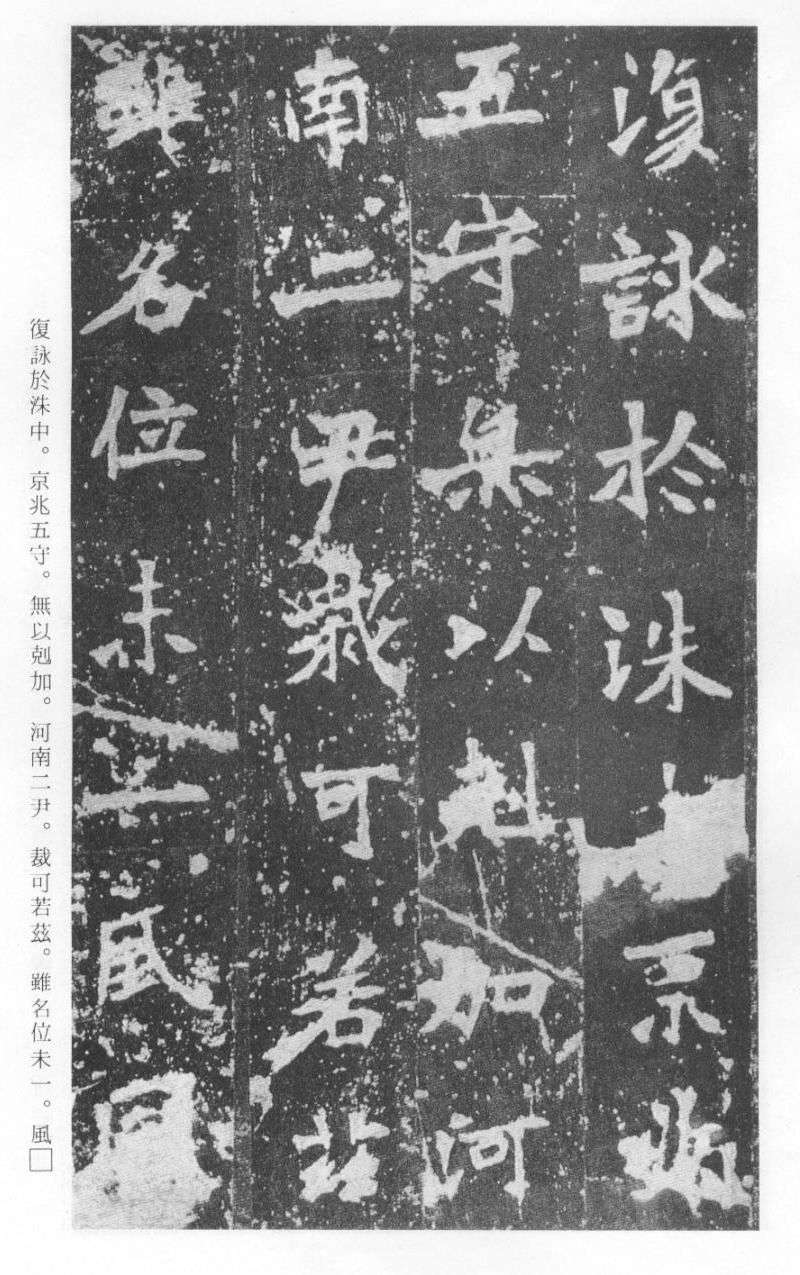 復詠於洙京兆
五守無以剋加河
南二尹裁可若茲
雖名位未一風
復詠於洙中。京兆五守。無以剋加。河南二尹。裁可若茲。雖名位未一。風□